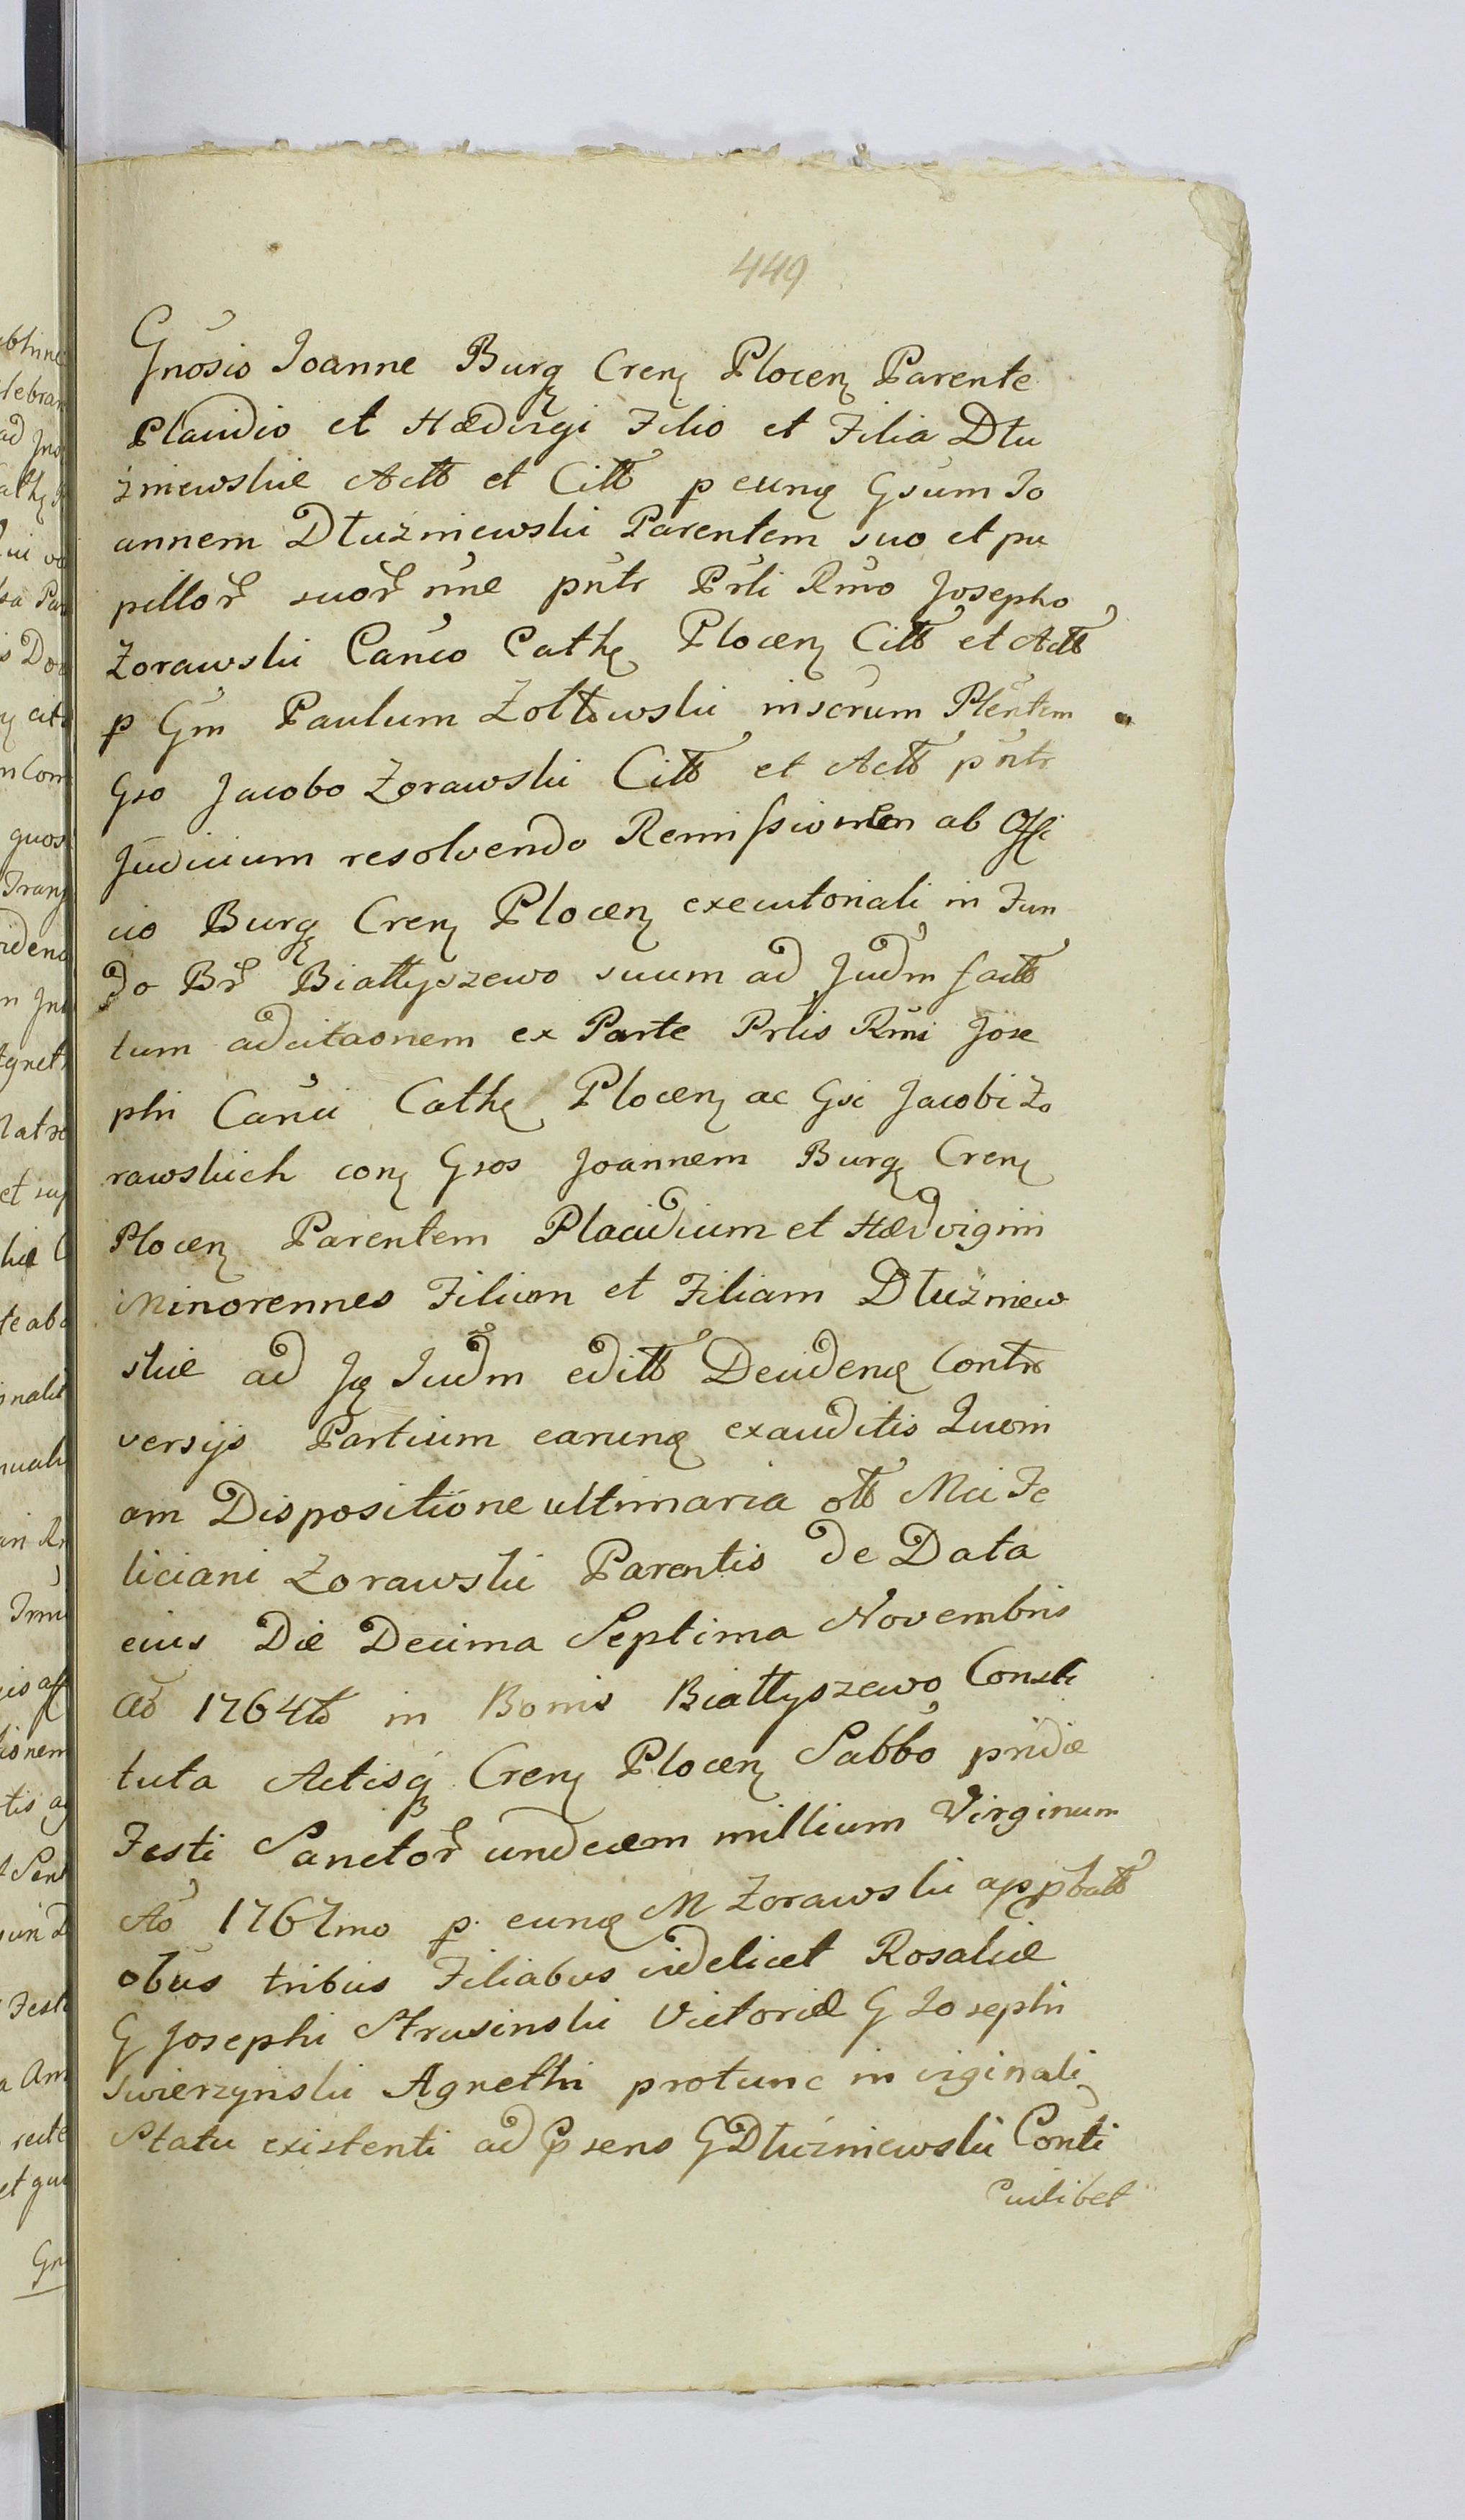 449
Gnosio Joanne Burg Cren Plocen Parente
Placidio et Hædvigi Filio et Filia Dłu
żniewskie Actt et Citt p eunq Gsum Jo
annem Dłużniewski Parentem suo et pu
pillor suor nne pntr Prli Rmo Josepho
Zorawski Canco Cath Plocen Citt et Actt
p Gm Paulum Zołtowski inscrum Plentem
Gso Jacobo Zorawski Citt et Actt pntr
Judicium resolvendo Remissionem ab Offi
cio Burg Cren Plocen executoriali in Fun
do Br Białłyszewo suum ad Judm factt
tum adcitaonem ex Parte Prlis Rmi Jose
phi Canci Cath Plocen ac Gsi Jacobi Zo
rawskich con Gsos Joannem Burg Cren
Plocen Parentem Placidium et Hædvigim
Minorennes Filium et Filiam Dłużniew
skie ad Jq Judm editt Decidenq Contro
versijs Partium earunq exauditis Quoni
am Dispositione ultimaria ott Mci Fe
liciani Zorawski Parentis de Data
eius Die Decima Septima Novembris
Ao 1764to in Bonis Białłyszewo Consti
tuta Actisq Cren Plocen Sabbo pridie
Festi Sanctor undecem millium Virginum
Ao 1767mo p eunq M Zorawski appbatt
obus tribus Filiabus videlicet Rosaliæ
G Josephi Strusinski Victoriæ G Josephi
Swierzynski Agnethi protunc in virginali
Statu existenti ad psens G Dłużniewski Conti
Cuilibet